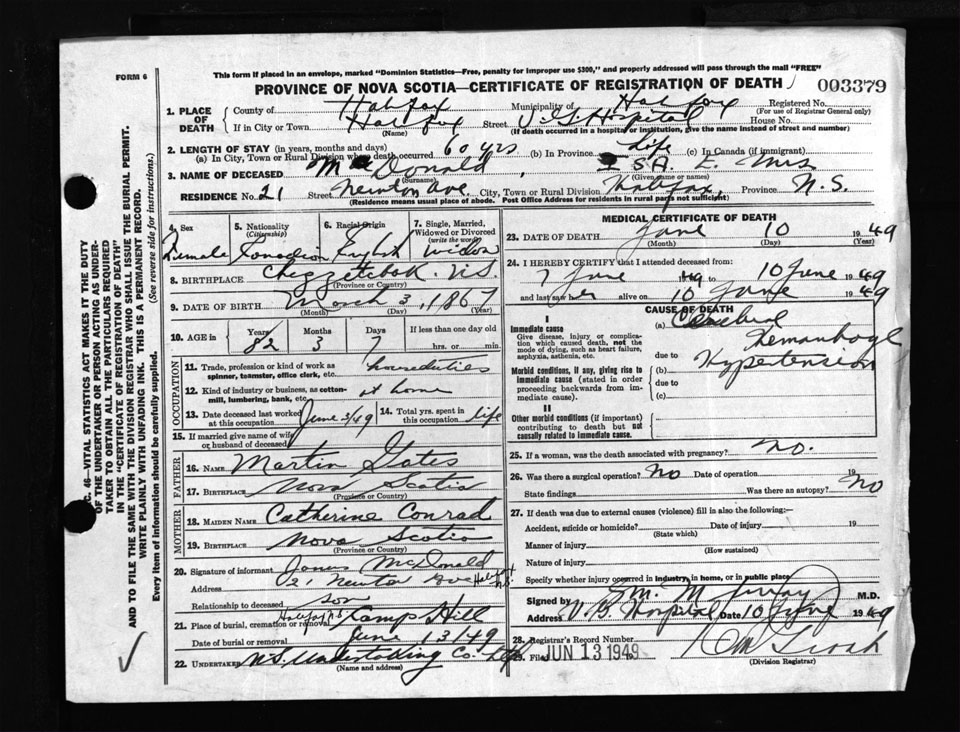 FORM 6
This form if placed in an envelope, marked "Dominion Statistics—Free, penalty for improper use $300," and properly addressed will pass through the mail "FREE"
PROVINCE OF NOVA SCOTIA—CERTIFICATE OF REGISTRATION OF DEATH
003379
1. PLACE OF DEATH
County of Halifax Municipality of Halifax Registered No.
(For use of Registrar General only)
If in City or Town Halifax Street V.G. Hospital House No.
(Name) (If death occurred in a hospital or institution, give the name instead of street and number)
2. LENGTH OF STAY (in years, months and days)
(a) In City, Town or Rural Division where death occurred 60 yrs (b) In Province Life (c) In Canada (if immigrant)
3. NAME OF DECEASED McDonald, E. Mrs
(Surname) (Given name or names)
RESIDENCE No. 21 Street Newton Ave City, Town or Rural Division Halifax, Province N.S.
(Residence means usual place of abode. Post Office Address for residents in rural parts not sufficient)
4. Sex Female
5. Nationality (Citizenship) Canadian
6. Racial Origin English
7. Single, Married, Widowed or Divorced (write the word) Widow
8. BIRTHPLACE N.S.
(Province or Country)
9. DATE OF BIRTH March 3, 1867
(Month) (Day) (Year)
10. AGE in Years Months Days If less than one day old
82 3 7 hrs. or min.
OCCUPATION
11. Trade, profession or kind of work as spinner, teamster, office clerk, etc. houseduties
12. Kind of industry or business, as cotton-mill, lumbering, bank, etc. at home
13. Date deceased last worked at this occupation June 3/49
14. Total yrs. spent in this occupation life
15. If married give name of wife or husband of deceased
FATHER
16. NAME Martin Gates
17. BIRTHPLACE Nova Scotia
(Province or Country)
MOTHER
18. MAIDEN NAME Catherine Conrad
19. BIRTHPLACE Nova Scotia
(Province or Country)
20. Signature of informant McDonald
Address 21 Newton Ave Halifax N.S.
Relationship to deceased son
21. Place of burial, cremation or removal Halifax N.S. Camp Hill
Date of burial or removal June 13/49
22. UNDERTAKER N.S. Undertaking Co. Ltd
(Name and address)
MEDICAL CERTIFICATE OF DEATH
23. DATE OF DEATH June 10 1949
(Month) (Day) (Year)
24. I HEREBY CERTIFY that I attended deceased from
7 June 1949 to 10 June 1949
and last saw her alive on 10 June 1949
CAUSE OF DEATH
I
Immediate cause (a) Cerebral Hemorrhage
Give disease, injury or complication which caused death, not the mode of dying, such as heart failure, asphyxia, asthenia, etc.
due to
Morbid conditions, if any, giving rise to immediate cause (stated in order proceeding backwards from immediate cause). (b) Hypertension
due to
(c)
II
Other morbid conditions (if important) contributing to death but not causally related to immediate cause.
25. If a woman, was the death associated with pregnancy? No.
26. Was there a surgical operation? No Date of operation 19
State findings Was there an autopsy? No
27. If death was due to external causes (violence) fill in also the following:—
Accident, suicide or homicide? Date of injury 19
(State which)
Manner of injury
(How sustained)
Nature of injury
Specify whether injury occurred in industry, in home, or in public place
Signed by M. Murray M.D.
Address V.G. Hospital Date 10 June 1949
28. Registrar's Record Number
29. Filed JUN 13 1949
(Division Registrar)
46—VITAL STATISTICS ACT MAKES IT THE DUTY
OF THE UNDERTAKER OR PERSON ACTING AS UNDER-
TAKER TO OBTAIN ALL THE PARTICULARS REQUIRED
IN THE "CERTIFICATE OF REGISTRATION OF DEATH"
AND TO FILE THE SAME WITH THE DIVISION REGISTRAR WHO SHALL ISSUE THE BURIAL PERMIT.
WRITE PLAINLY WITH UNFADING INK. THIS IS A PERMANENT RECORD.
Every item of information should be carefully supplied. (See reverse side for instructions.)